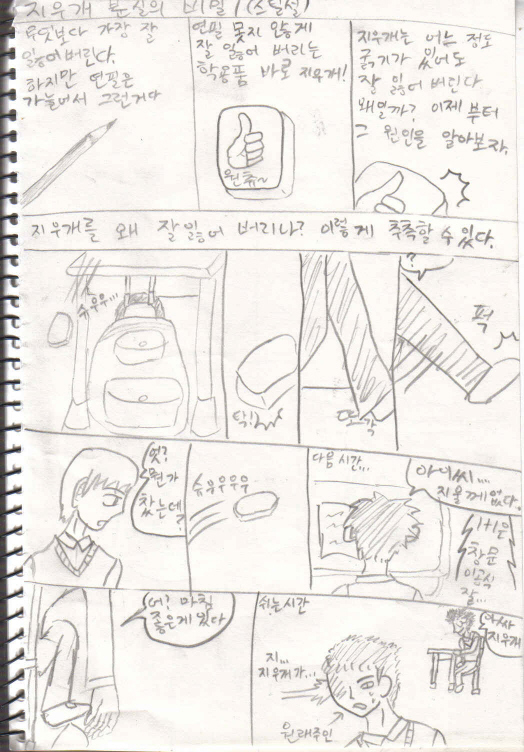 지우개 분실의 비밀 1 (스틸컷)
무엇보다 가장 잘
잃어버린다.
하지만 연필은
가늘어서 그런거다
연필 못지 않게
잘 잃어 버리는
학용품 바로 지우개!
원츄~
지우개는 어느 정도
굵기가 있어도
잘 잃어 버린다
왜일까? 이제 부터
그 원인을 알아보자.
지우개를 왜 잘 잃어 버리나? 이렇게 추측할 수 있다.
슈우우...
탁!
또각
?
퍽
엇?
뭔가
찼는데?
슈우우우우
다음 시간...
아이씨...
지울께 없다.
1+1은
창문
이공식
잘...
어? 마침
좋은게 있다
쉬는시간
지...
지우개가...
원래주인
아싸
지우개